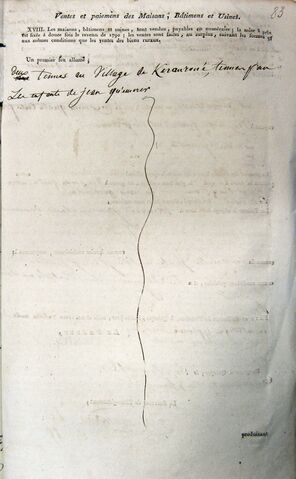 83
Ventes et paiemens des Maisons, Bâtimens et Usines.
XVIII. Les maisons, bâtimens et usines, sont vendus, payables en numéraire; la mise à prix
est fixée à douze fois le revenu de 1790; les ventes sont faites, au surplus, suivant les formes et
aux mêmes conditions que les ventes des biens ruraux.
Un premier feu allumé;
deux tenues au Village de tenues par
Les enfants de jean quemener
produisant